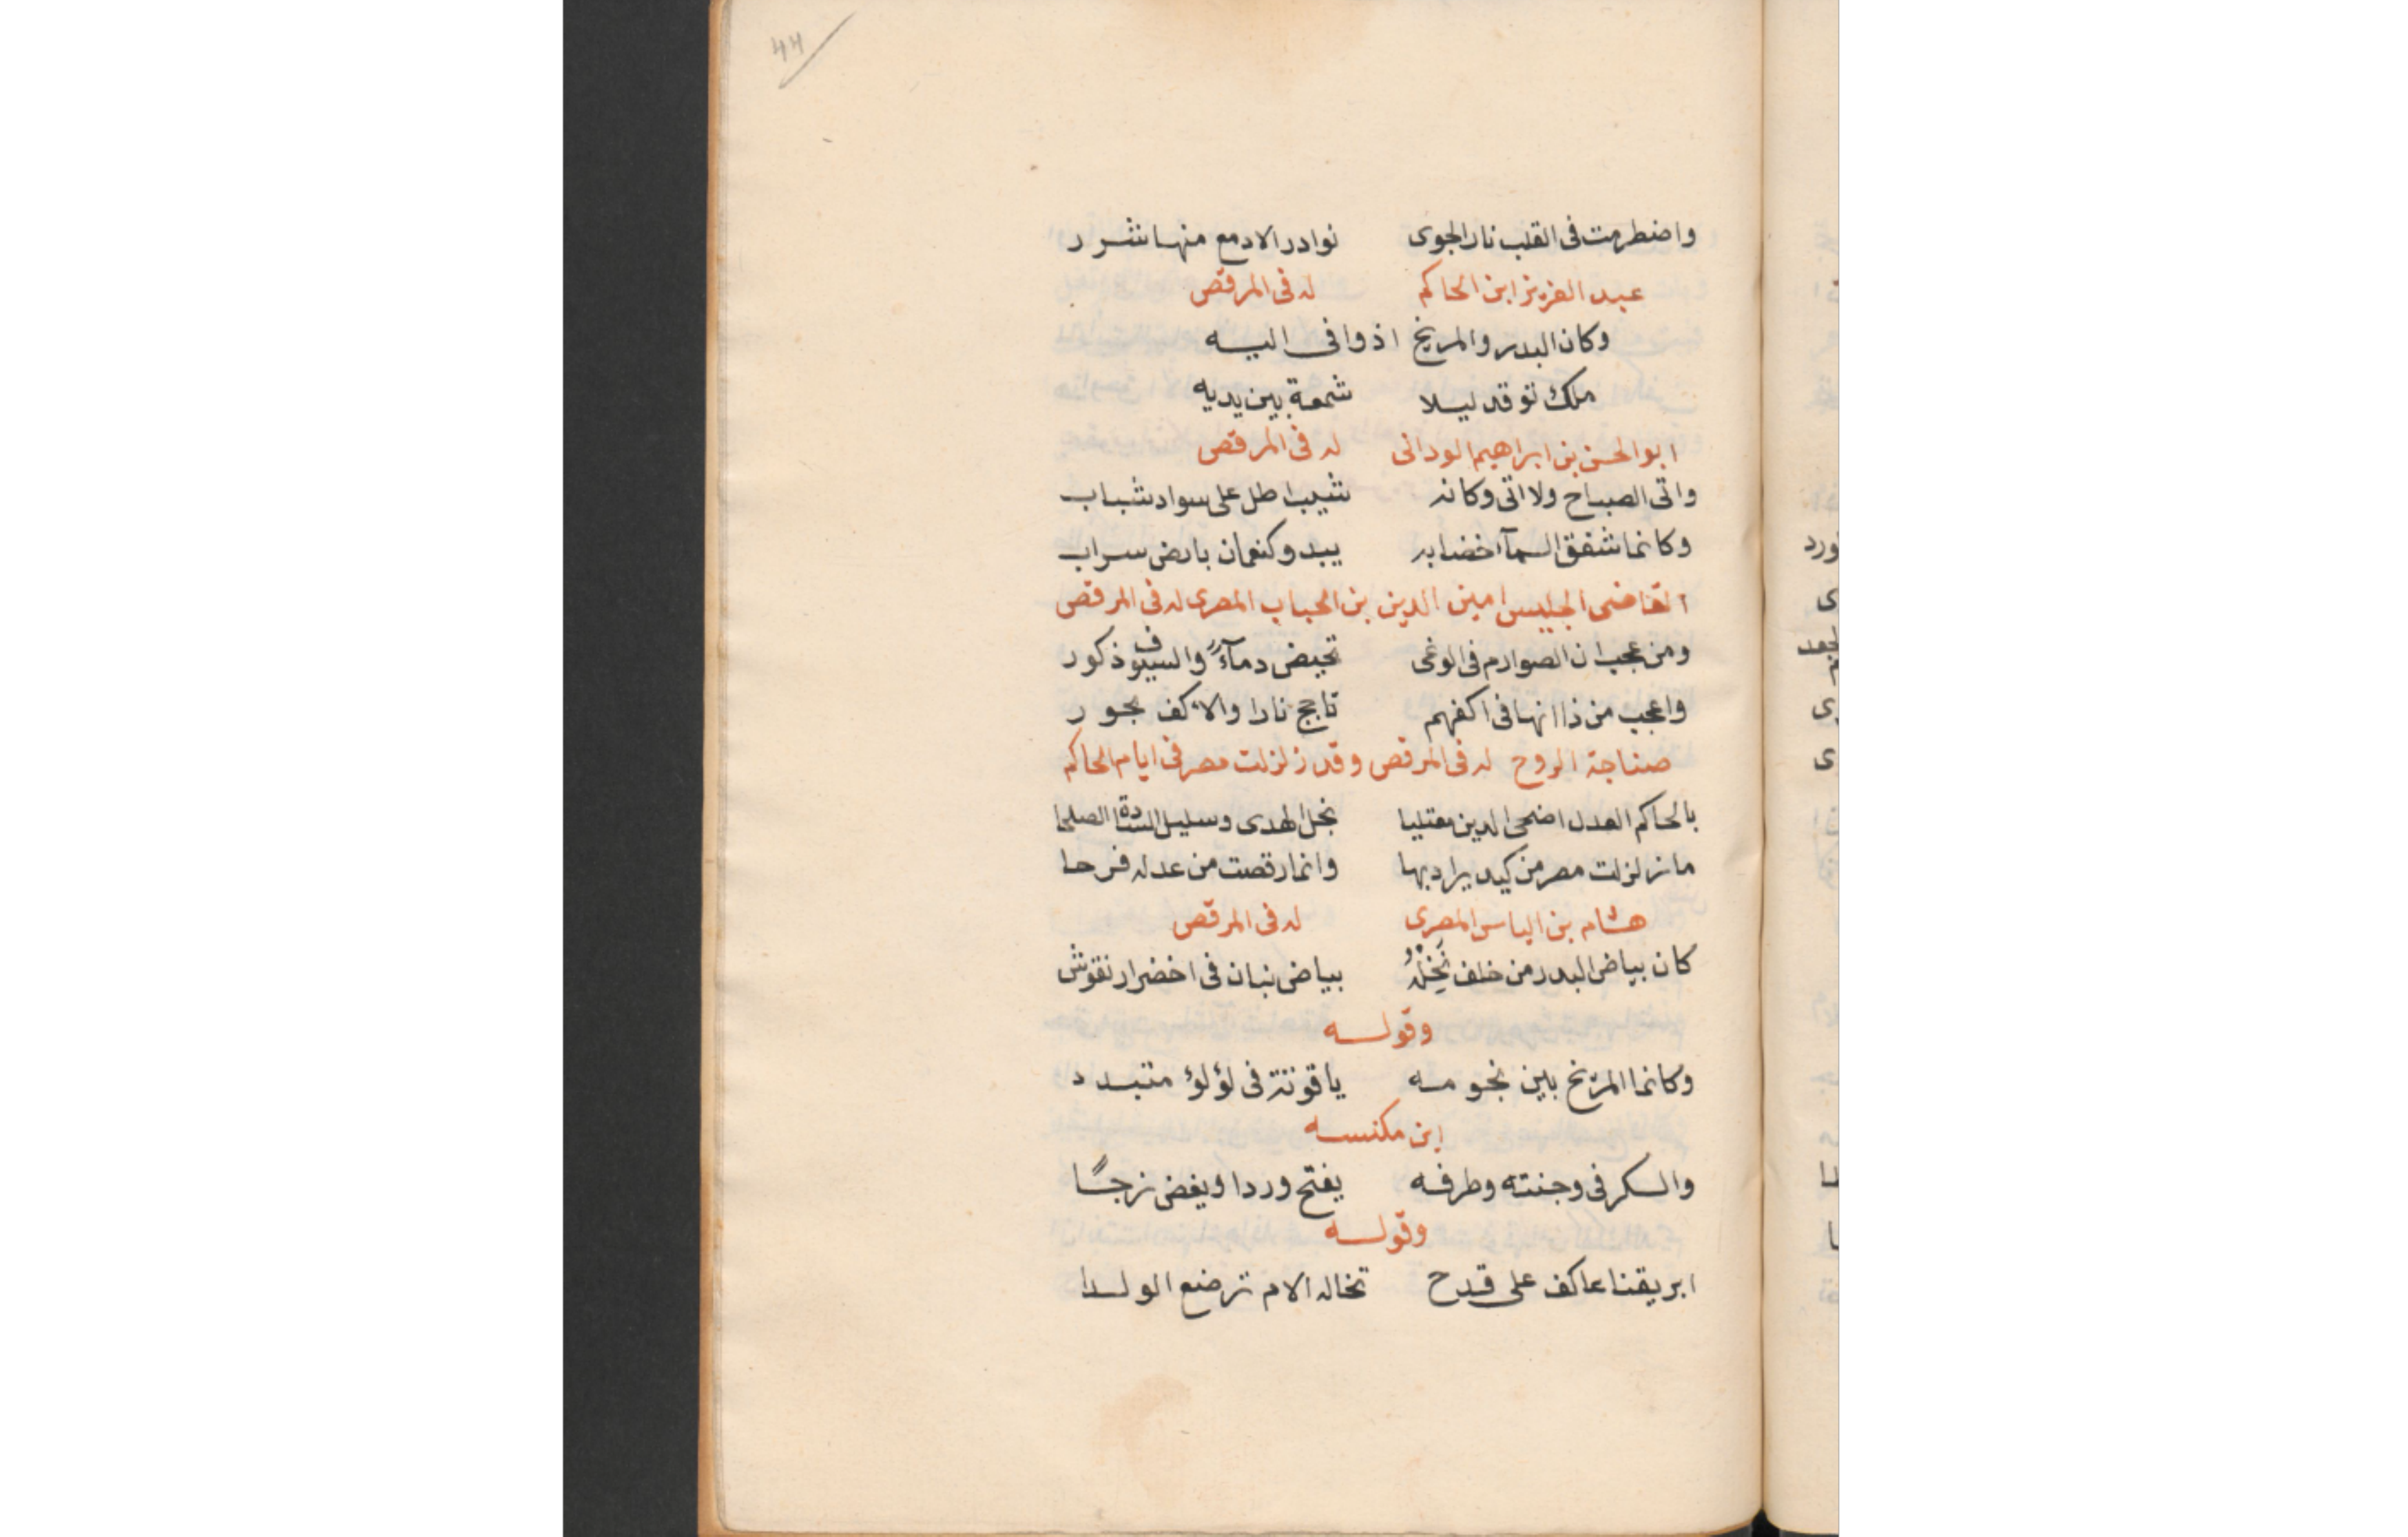 44
واضطرمت فى القلب نار الجوى نوادر الادمع منها شرر
عبد العزيز ابن الحاكم له فى المرقص
وكان البدر والمريخ اذ وافى اليه
ملك توقد ليلا شمعة بين يديه
ابو الحسن بن ابراهيم الودانى له فى المرقص
واتى الصباح ولا اتى وكانه شيب اطل على سواد شباب
وكانما شفق السمآء خضابه يبدو كنعمان بارض سراب
القاضى الجليس امين الدين بن الحباب المصرى له فى المرقص
ومن عجب ان الصوارم فى الوغى تحيض دمآءً والسيوف ذكور
واعجب من ذا انها فى اكفهم تاجج نارا والاكف بحور
صناجة الروح له فى المرقص وقد زلزلت مصر فى ايام الحاكم
بالحاكم العدل اضحى الدين معتليا نجل الهدى وسليل السادة الصلحا
ما زلزلت مصر من كيد يراد بها وانما رقصت من عدله فرحا
هشام بن الياس المصرى له فى المرقص
كان بياض البدر من خلف نَخْلَةٍ بياض بنان فى اخضرار نقوش
وقوله
وكانما المرّيخ بين نجومه ياقوتة فى لؤلؤ متبدد
ابن مكنسه
والسكر فى وجنته وطرفه يفتح وردا ويغض نرجسًا
وقوله
ابريقنا عاكف على قدح تخاله الام ترضع الولدا